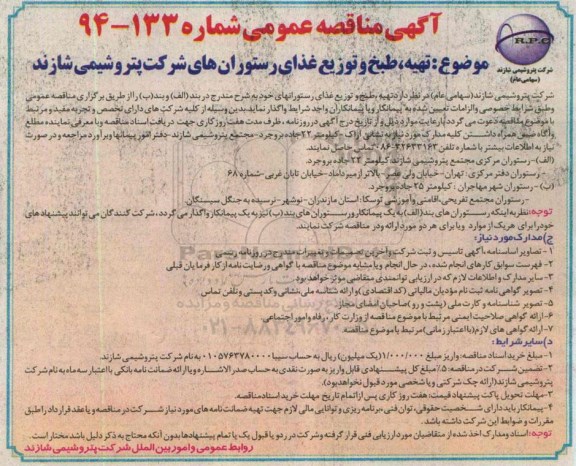 آگهی مناقصه عمومی شماره ۱۳۳-۹۴
R.P.C
شرکت پتروشیمی شازند
(سهامی عام)
موضوع: تهیه، طبخ و توزیع غذای رستوران های شرکت پتروشیمی شازند
شرکت پتروشیمی شازند (سهامی عام) در نظر دارد تهیه، طبخ و توزیع غذای رستورانهای خود به شرح مندرج در بند (الف) و بند (ب) را از طریق برگزاری مناقصه عمومی
وطبق شرایط خصوصی و الزامات تعیین شده به پیمانکار و یا پیمانکاران واجد شرایط واگذار نماید. بدین وسیله از کلیه شرکت های دارای تخصص و تجربه مفید و مرتبط
با موضوع مناقصه دعوت می گردد با رعایت موارد ذیل و از تاریخ درج آگهی در روزنامه، ظرف مدت هفت روز کاری جهت دریافت اسناد مناقصه و یا معرفی نماینده مطلع
و آگاه ضمن همراه داشتن کلیه مدارک مورد نیاز به نشانی اراک - کیلومتر ۲۲ جاده بروجرد - مجتمع پتروشیمی شازند - دفتر امور پیمانها مراجعه و در صورت
نیاز به اطلاعات بیشتر با شماره تلفن ۳۲۶۳۳۱۶۳-۰۸۶ تماس حاصل نمایند.
(الف) - رستوران مرکزی مجتمع پتروشیمی شازند کیلومتر ۲۲ جاده بروجرد.
- رستوران دفتر مرکزی: تهران - خیابان ولی عصر - بالاتر از میرداماد - خیابان تابان غربی - شماره ۶۸
(ب) - رستوران شهر مهاجران: کیلومتر ۲۵ جاده بروجرد.
- رستوران مجتمع تفریحی، اقامتی و آموزشی توسکا: استان مازندران - نوشهر - نرسیده به جنگل سیسنگان.
توجه: نظر به اینکه رستوران های بند (الف) به یک پیمانکار و رستوران های بند (ب) نیز به یک پیمانکار واگذار می گردد، شرکت کنندگان می توانند پیشنهاد های
خود را برای هریک از موارد و یا برای هر دو مورد ارائه و در مناقصه شرکت نمایند.
ج) مدارک مورد نیاز:
۱- تصاویر اساسنامه، آگهی تاسیس و ثبت شرکت و آخرین تصمیمات و تغییرات مندرج در روزنامه رسمی.
۲- فهرست سوابق کارهای انجام شده، در حال انجام و یا مشابه موضوع مناقصه با گواهی و رضایت نامه از کارفرمایان قبلی
۳- سایر مدارک و اطلاعات لازم که در ارزیابی توانمندی متقاضی موثر خواهد بود.
۴- تصویر گواهی نامه ثبت نام مؤدیان مالیاتی (کد اقتصادی) و ارائه شناسه ملی، نشانی و کد پستی و تلفن تماس.
۵- تصویر شناسنامه و کارت ملی (پشت و رو) صاحبان امضای مجاز.
۶- ارائه گواهی صلاحیت ایمنی مرتبط با موضوع مناقصه از وزارت کار، رفاه و امور اجتماعی.
۷- ارائه گواهی های لازم (با اعتبار زمانی) مرتبط با موضوع مناقصه.
د) سایر شرایط:
۱- مبلغ خرید اسناد مناقصه: واریز مبلغ ۱/۰۰۰/۰۰۰ (یک میلیون) ریال به حساب سیبا ۰۱۰۵۷۶۳۷۸۰۰۰۰ به نام شرکت پتروشیمی شازند.
۲- تضمین شرکت در مناقصه: ۵٪ مبلغ کل پیشنهادی قابل واریز به صورت نقدی به حساب صدرالاشاره و یا ارائه ضمانت نامه بانکی با اعتبار سه ماه به نام شرکت
پتروشیمی شازند (ارائه چک شرکتی و یا شخصی مورد قبول نخواهد بود).
۳- مهلت تحویل پاکت پیشنهاد قیمت: هفت روز کاری پس از اتمام تاریخ مهلت خرید اسناد مناقصه.
۴- پیمانکار باید دارای شخصیت حقوقی، توان فنی، برنامه ریزی و توانایی مالی لازم جهت تهیه ضمانت نامه های مورد نیاز شرکت در مناقصه و یا عقد قرارداد را طبق
مقررات و ضوابط این شرکت داشته باشد.
توجه: اسناد و مدارک اخذ شده از متقاضیان مورد ارزیابی فنی قرار گرفته و شرکت در رد و یا قبول یک یا تمام پیشنهادها بدون آنکه محتاج به ذکر دلیل باشد مختار است.
روابط عمومی و امور بین الملل شرکت پتروشیمی شازند